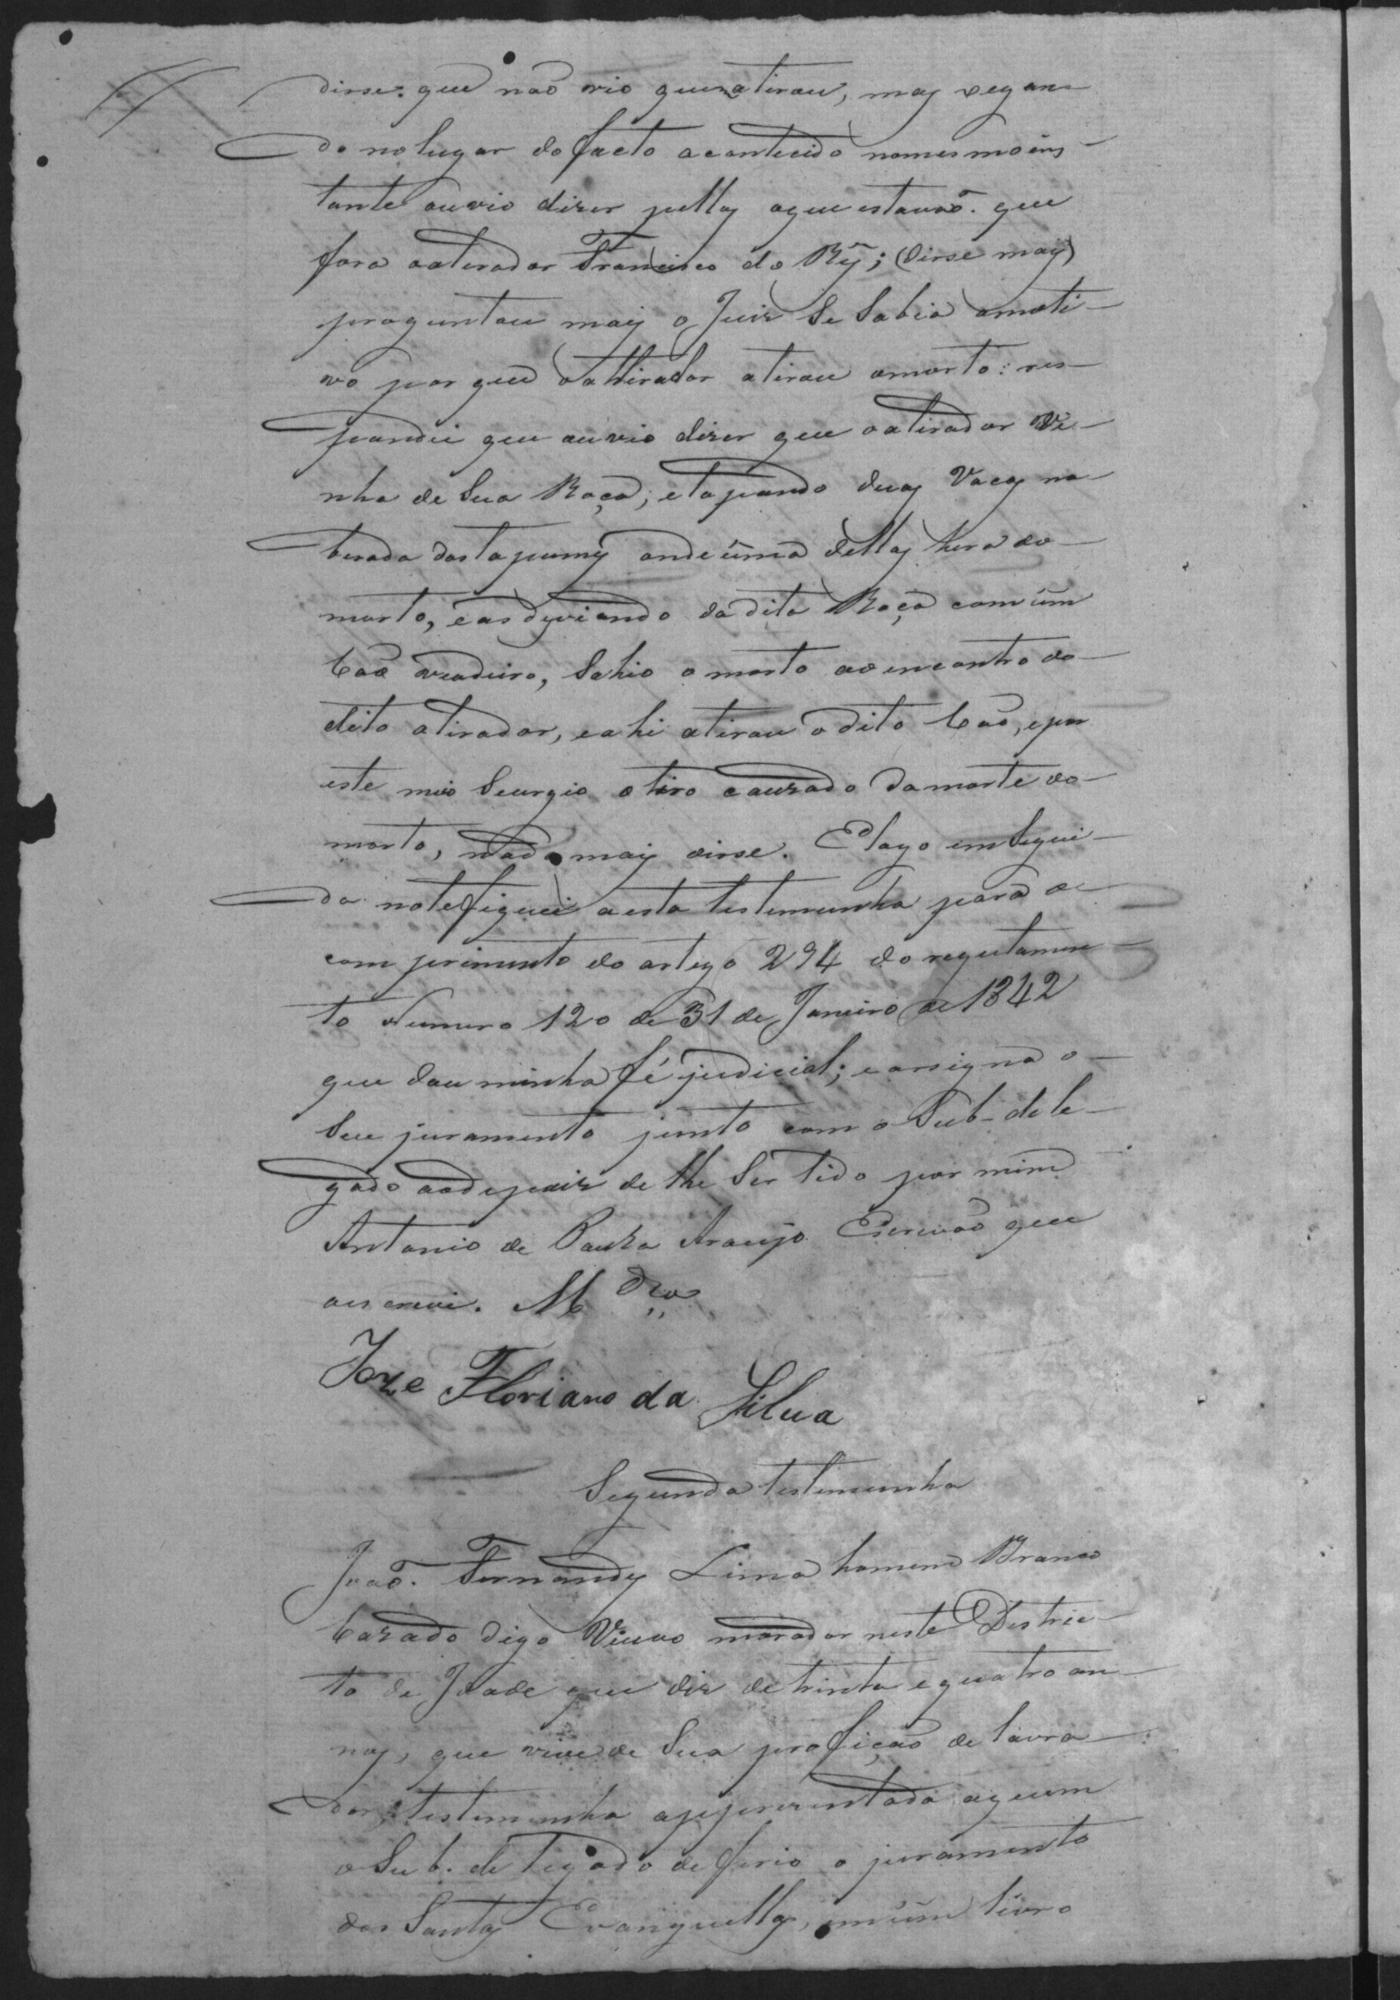 dirse. que não vio quem atirau, may xegan-
do no lugar do facto acontecido nomesmo ins-
tante auvio dizer pellas que estavaõ. que
fora o atirador Francisco do Rẽy; (dirse mais)
proguntou mais o Juiz Se Sabia o moti-
vo por que o attirador atirau o morto: res-
pondeu que auvio dizer que o atirador Vi-
nha de Sua Roça; e topando duas Vacas na
beirada dos tapumes onde uma dellas hera do
morto, e as desviando da dita Roça com um
Caõ veadeiro, Sahio o morto ao encontro do
dito atirador, e ahi atirau o dito Caõ, e por
este meio Seurgio o tiro cauzado da morte do
morto, nada mais dirse. E logo em Segui-
da notefiquei a esta testemunha para o
comprimento do artego 294 do regulamen-
to Numero 120 de 31 de Janeiro de 1842
que dou minha fé judicial; e assigna o
Seu juramento junto com o Sub-dele-
gado aodepois de lhe Ser lido por mim
Antonio de Pauza Araujo Escrivaõ que
oescrevi. M
Joze Floriano da Silva
Segunda testemunha
Joaõ. Fernandes Lima homem Branco
Cazado digo Viuvo morador neste Distric-
to de Jaade que diz de trinta e quatro an-
nos, que vive de Sua profiçaõ de lavra-
dor, testemunha apprezentada aquem
o Sub. delegado deferio o juramento
dos Santos Evanguellhos, em um livro